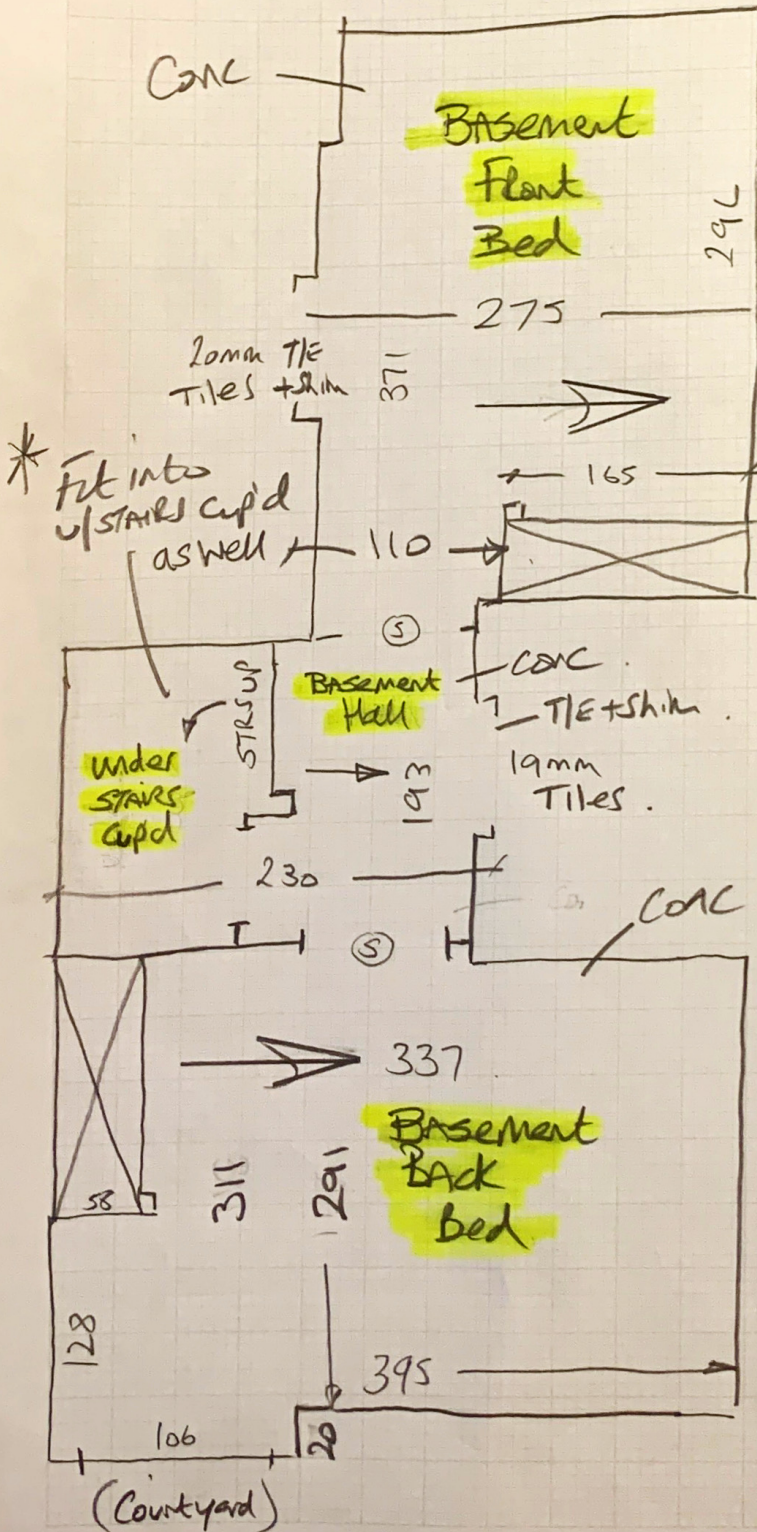 Conc
Basement
Front
Bed
291
275
20mm T/E
Tiles + Shim
371
165
* Fit into
u/STAIRS Cup'd
as well
110
S
Conc.
STRS UP
Basement
Hall
T/E + Shim.
19mm
Tiles.
Under
STAIRS
Cup'd
193
230
Conc
T
S
337
Basement
Back
Bed
58
311
291
128
395
106
20
(Courtyard)